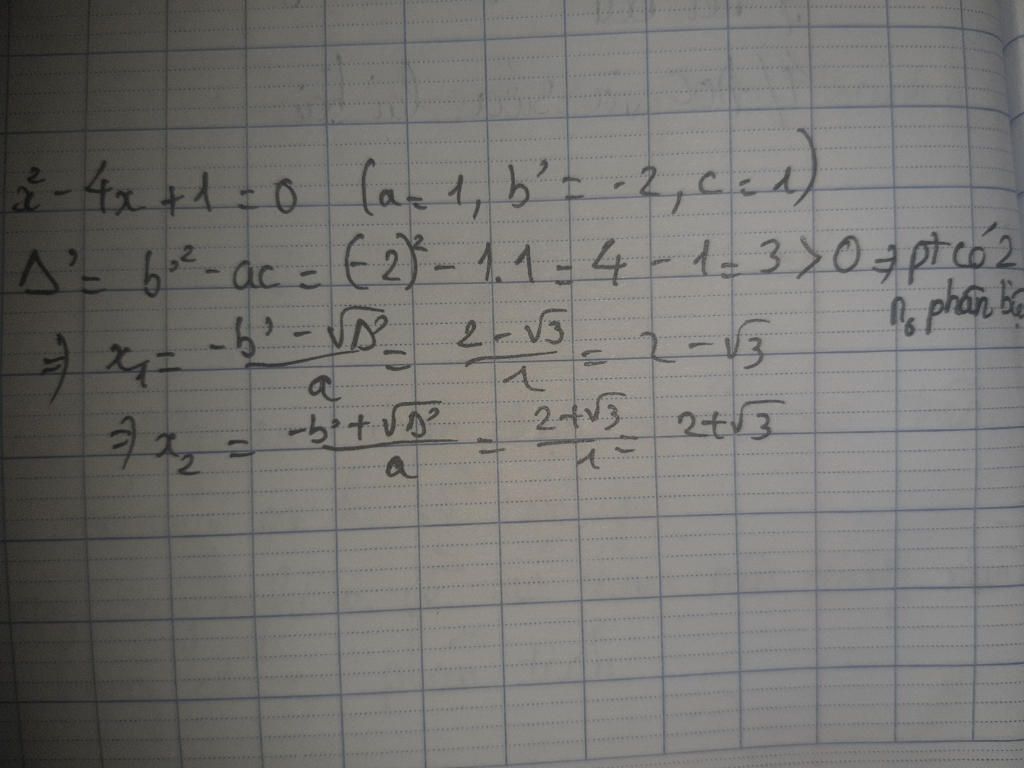 x² - 4x + 1 = 0 (a = 1, b' = -2, c = 1)
Δ' = b'² - ac = (-2)² - 1.1 = 4 - 1 = 3 > 0 ⇒ pt có 2
n₀ phân
⇒ x₁ = (-b' - √Δ')/a = (2 - √3)/1 = 2 - √3
⇒ x₂ = (-b' + √Δ')/a = (2 + √3)/1 = 2 + √3